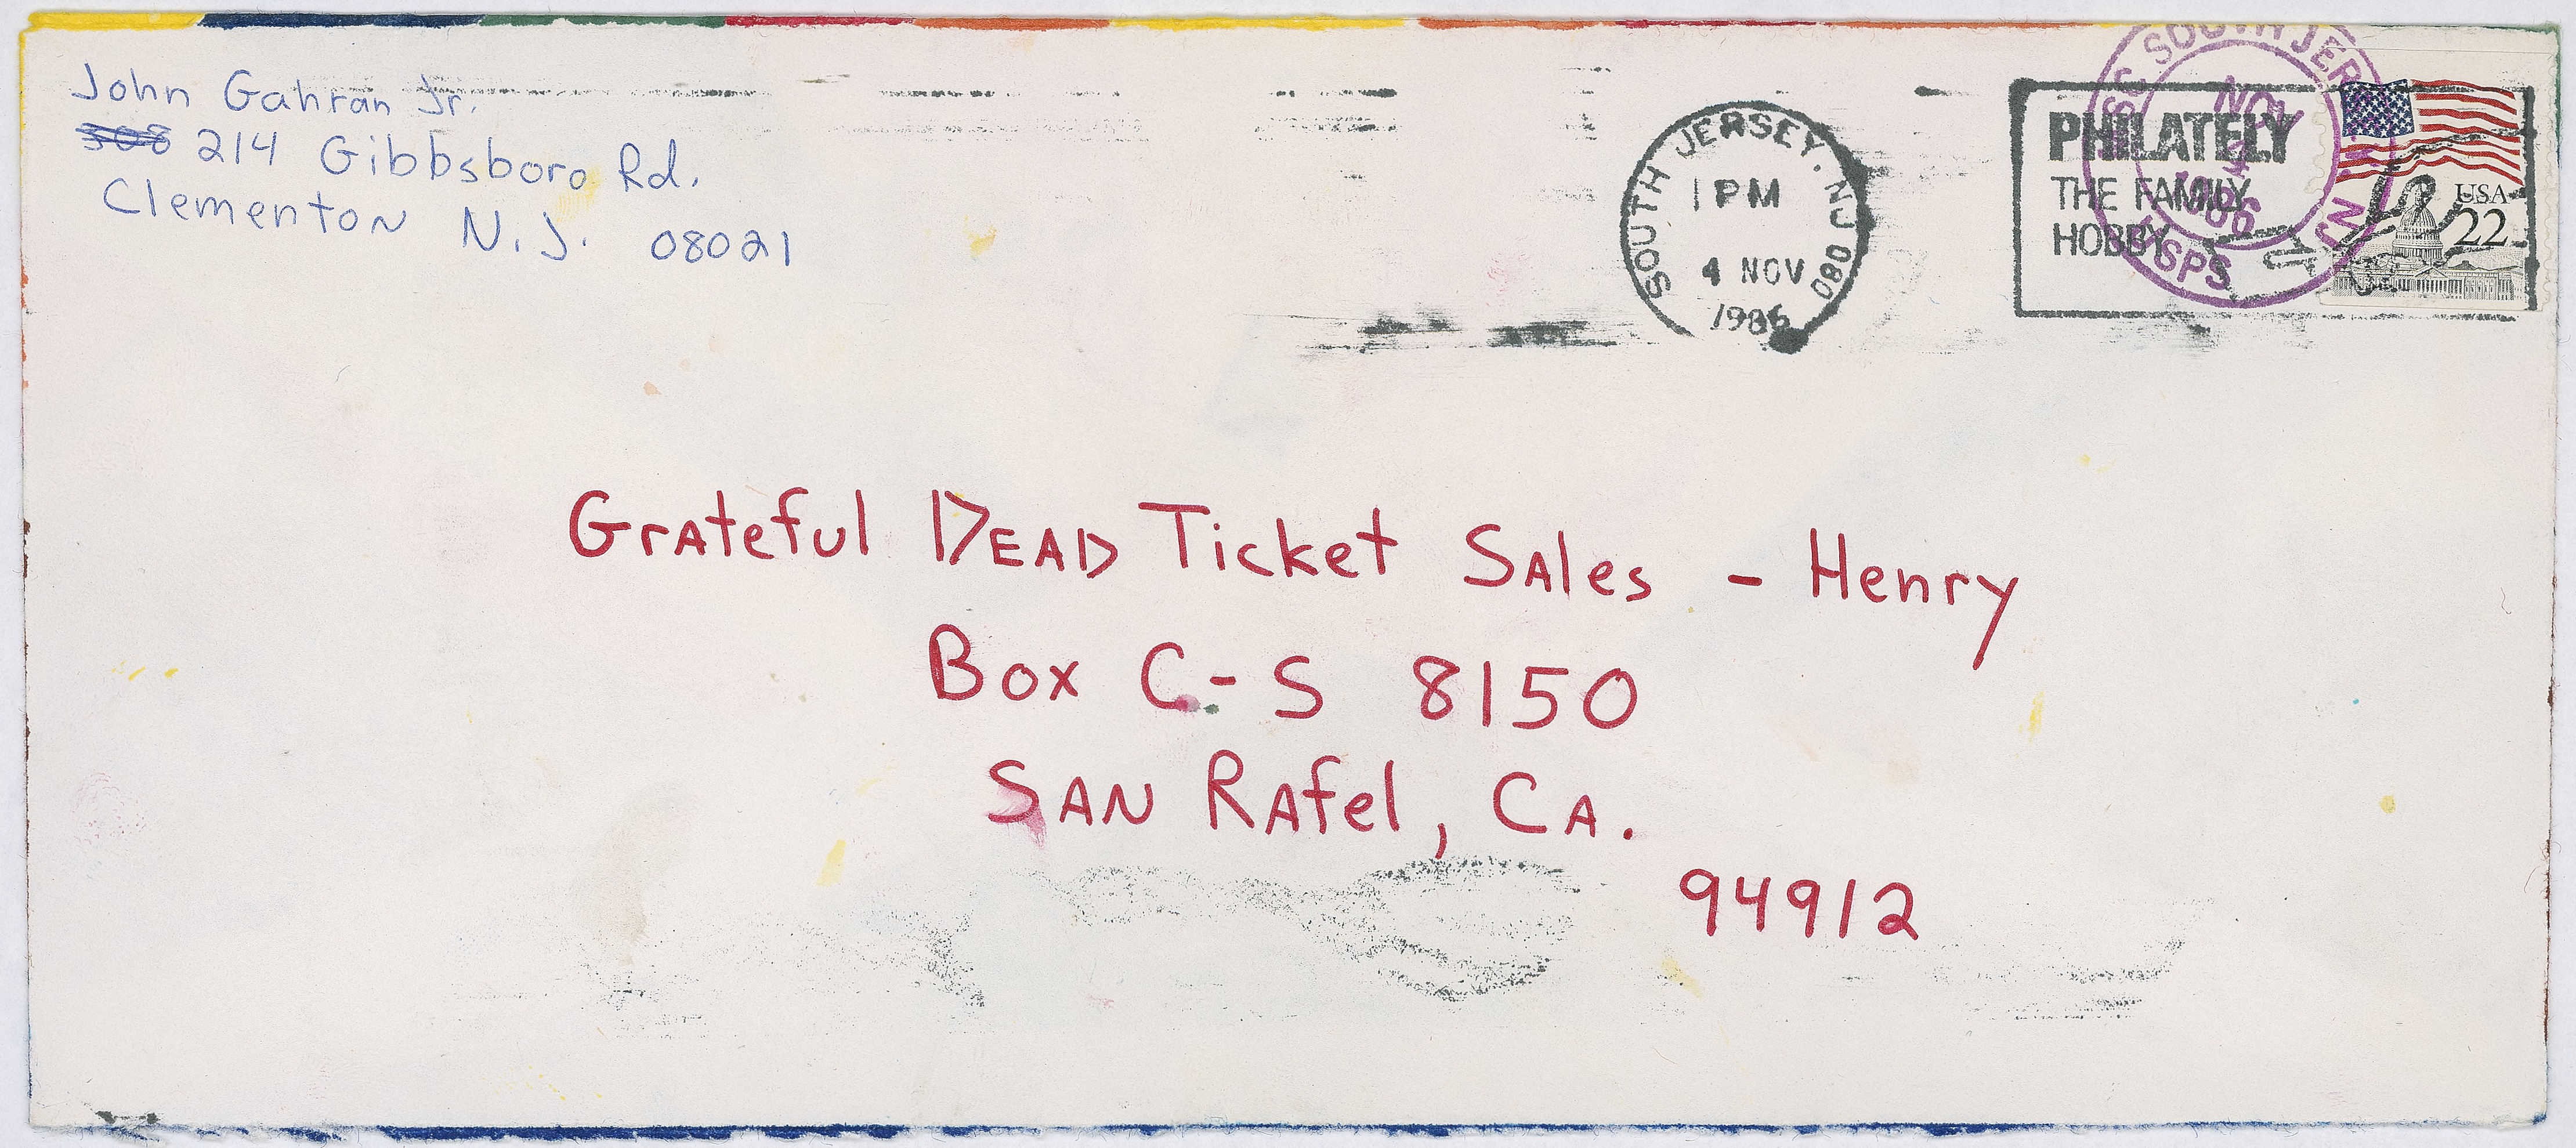 John Gahran Jr.
308 214 Gibbsboro Rd.
Clementon N.J. 08021
SOUTH JERSEY, NJ 080
1 PM
4 NOV
1986
PHILATELY
THE FAMILY
HOBBY
SOUTH JERSEY, NJ
NOV
4
1986
USPS
USA
22
Grateful DEAD Ticket Sales - Henry
Box C-S 8150
SAN RAfel, CA.
94912